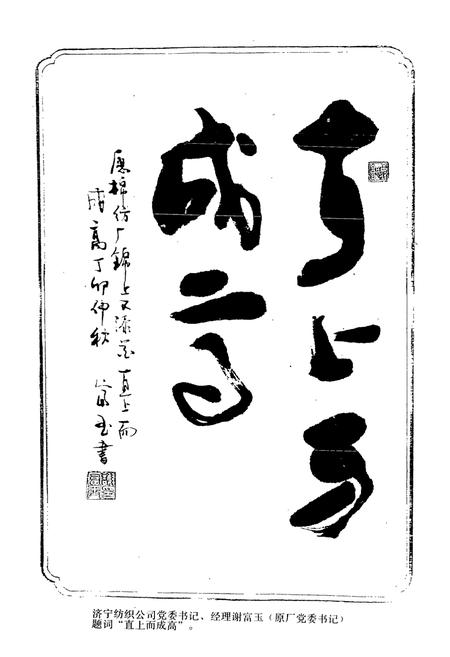 直上而
成高
愿棉纺厂锦上又添花直上而
成高丁卯仲秋 富玉書
济宁纺织公司党委书记、经理谢富玉（原厂党委书记）
题词“直上而成高”。